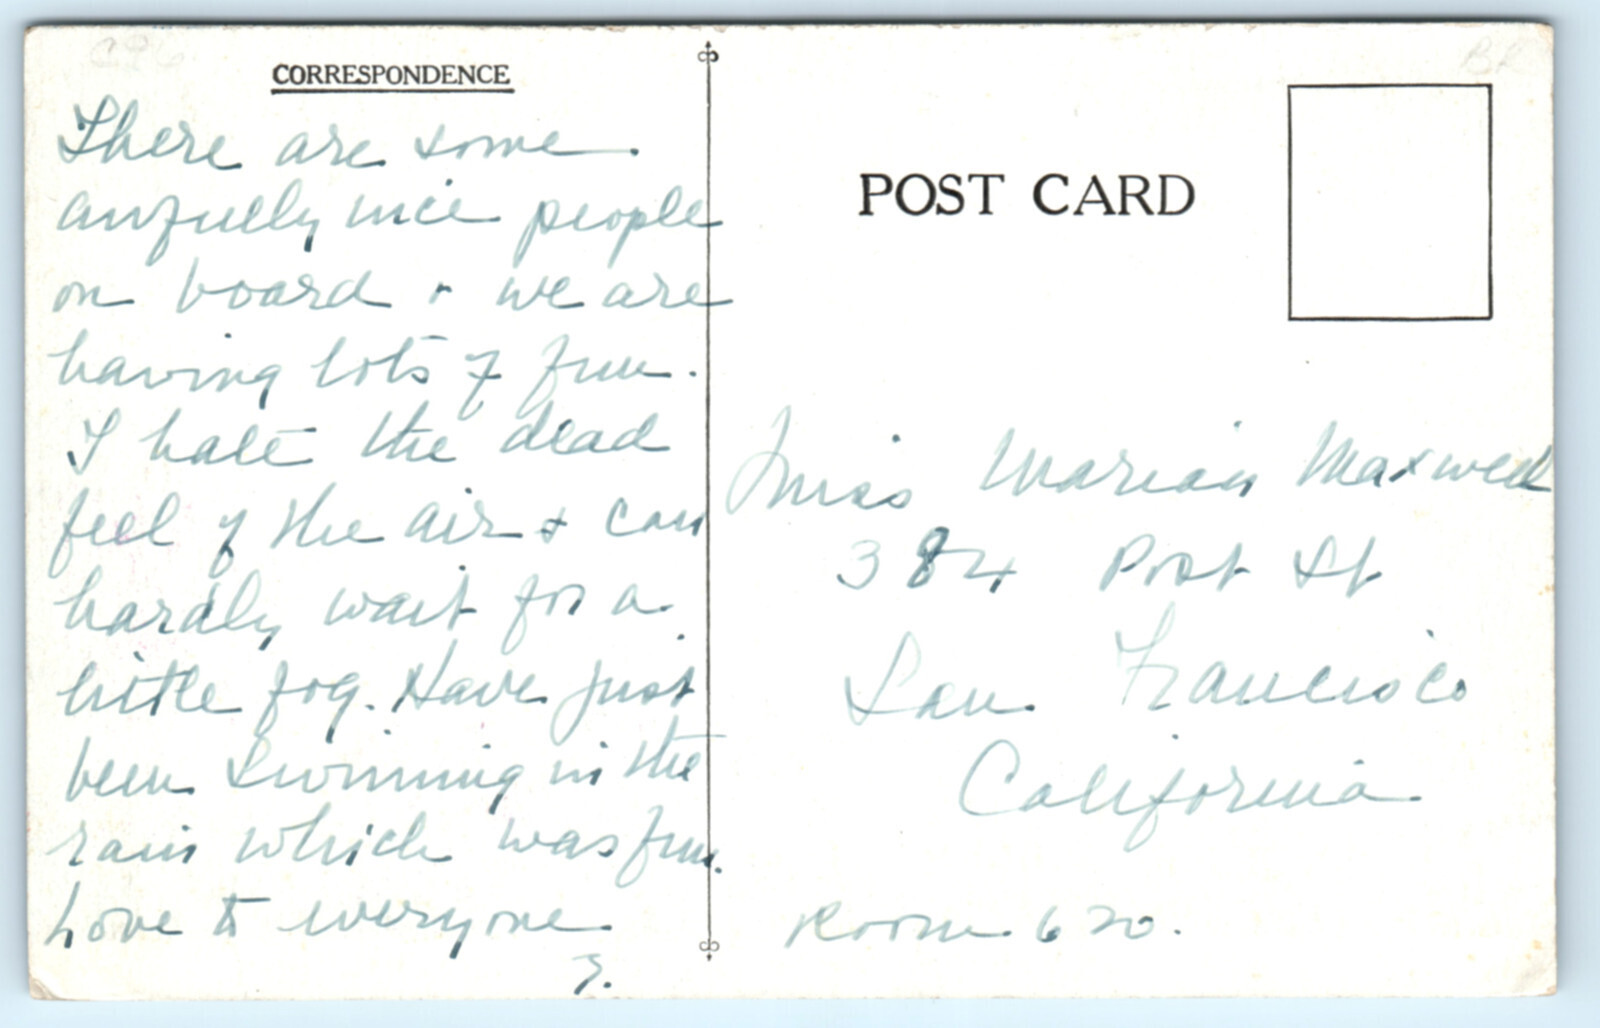 CORRESPONDENCE
There are some
awfully nice people
on board + we are
having lots of fun.
I hate the dead
feel of the air + can
hardly wait for a
little fog. Have just
been swimming in the
rain which was fun.
Love to everyone
POST CARD
Miss Marian Maxwell
384 Post St
San Francisco
California
Room 620.